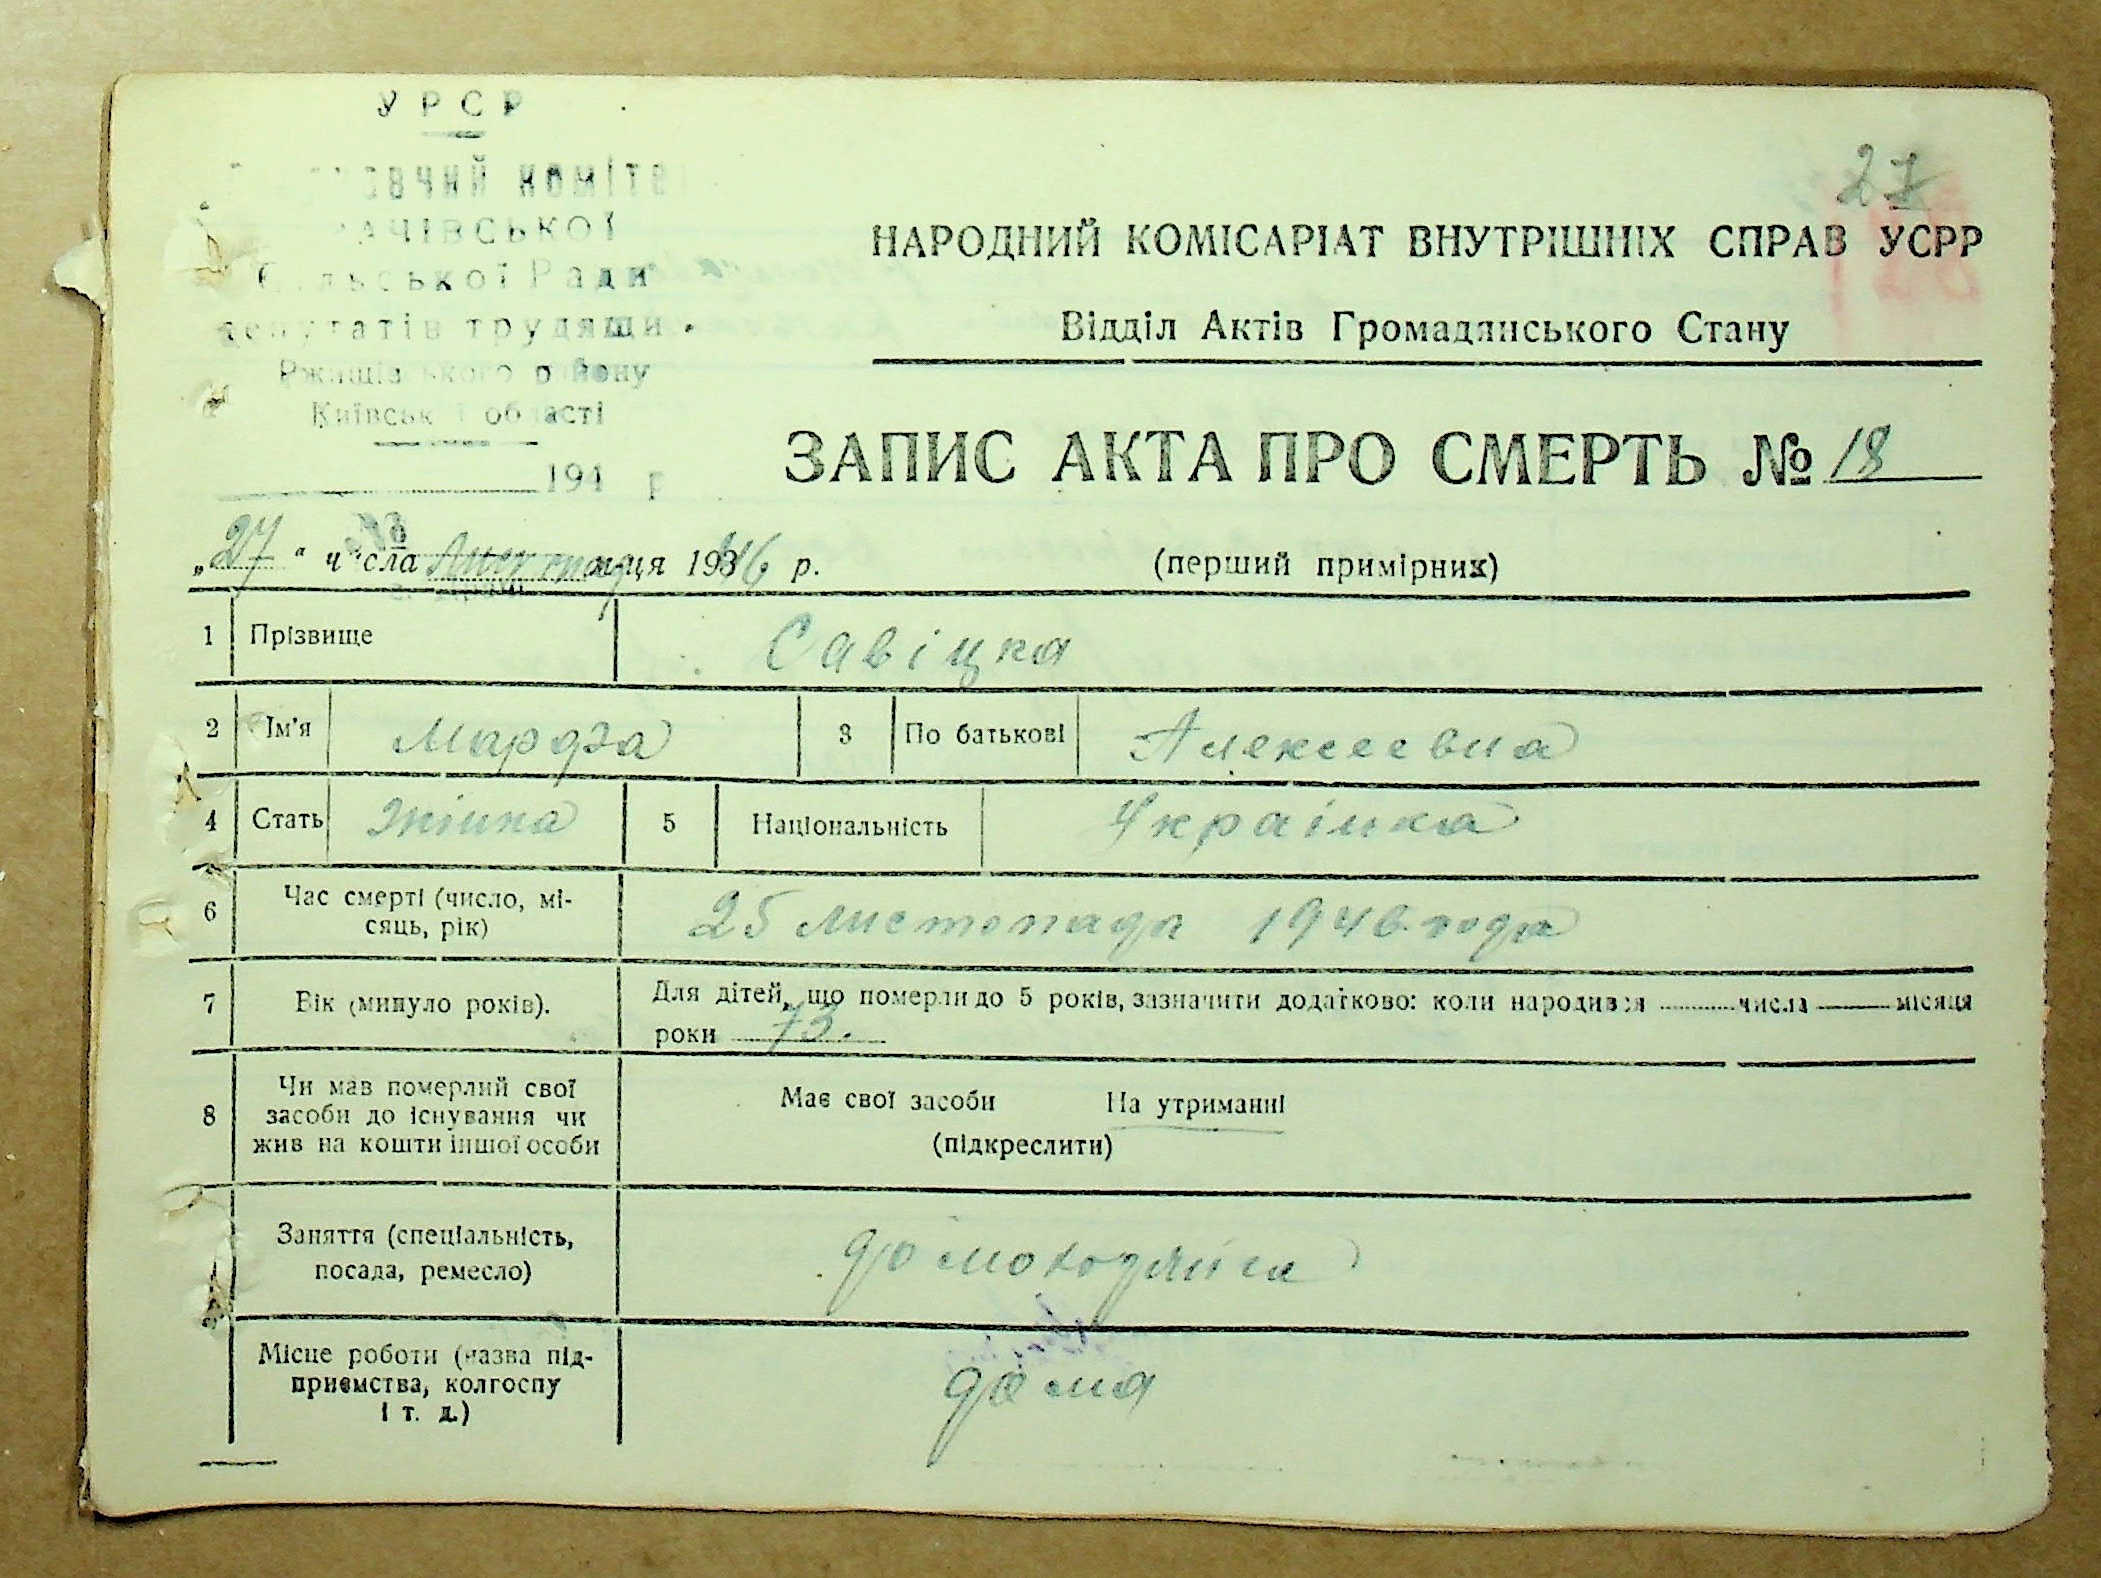 УРСР
комітет
Сільської Ради
депутатів трудящи
Ржищівського району
Київської області
194 р
27
НАРОДНИЙ КОМІСАРІАТ ВНУТРІШНІХ СПРАВ УСРР
Відділ Актів Громадянського Стану
ЗАПИС АКТА ПРО СМЕРТЬ № 18
„27“ числа Листопад м-ця 1946 р.
(перший примірник)
1 Прізвище Савіцка
2 Ім'я Марфа 3 По батькові Алексеевна
4 Стать жінка 5 Національність Українка
6 Час смерті (число, мі-
сяць, рік) 25 листопада 1946 года
7 Вік (минуло років). Для дітей, що померли до 5 років, зазначити додатково: коли народився числа місяця
роки 73.
8 Чи мав померлий свої
засоби до існування чи
жив на кошти іншої особи
Має свої засоби На утриманні
(підкреслити)
Заняття (спеціальність,
посада, ремесло) домоходяйка
Місце роботи (назва під-
приємства, колгоспу
і т. д.) дома